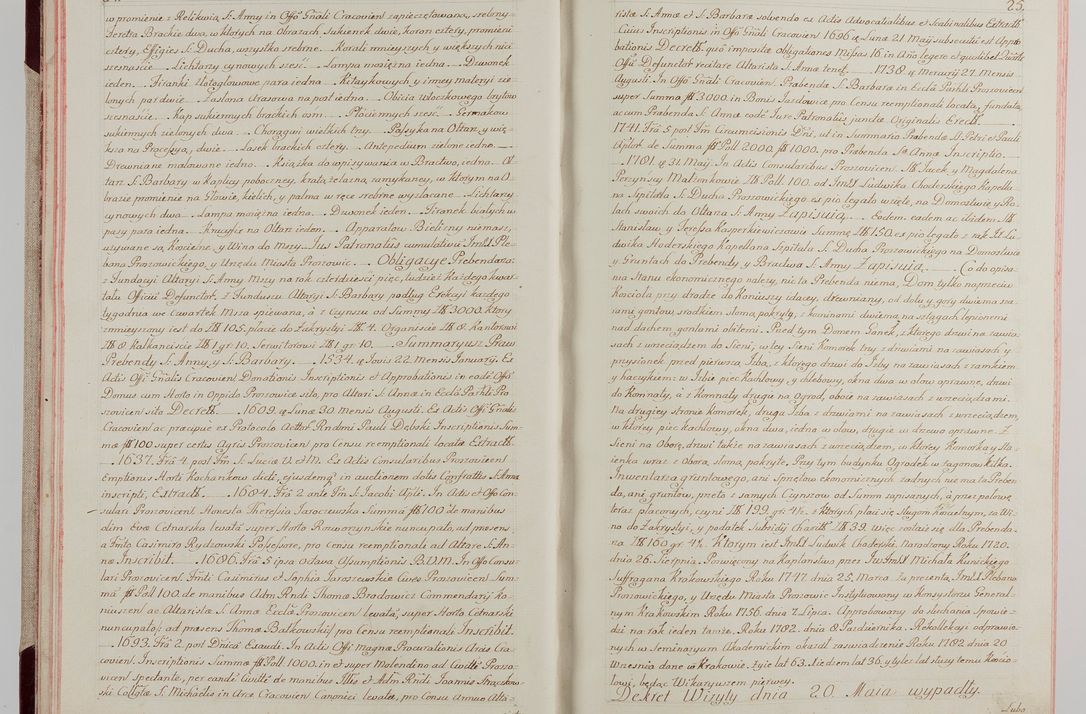 w promienie z Relikwią S. Anny in Offo Gnali Cracovien zapieczętowaną, srebrny
Feretra Brackie dwa, w których na Obrazach Sukienek dwie, koron cztery, promieni
cztery, Effigies S. Ducha, wszystko srebrne. Korali mnieyszych y większych nici
szesnaście. Lichtarzy cynowych sześć. Lampa mosiężna iedna. Dwonek
ieden. Firanki
lonych par dwie. Zasłona Arasowa na post iedna. Obicia włoczkowego brytow
szesnaście. Kap sukiennych brackich osm. Płóciennych sześć. Germakow
sukiennych zielonych dwa. Chorągwi wielkich trzy. Passyka na Ołtarz y więk-
ksza na Processyą, dwie. Lasek brackich cztery. Antepedium zielone iedne.
Drewniane malowane iedno. Książka do wpisywania w Bractwo, iedna. Oł
tarz S. Barbary w Kaplicy poboczney, kratą żelazną zamykaney, w którym na O-
brazie promienie na Głowie, kielich, y palma w ręce srebrne wyzłacane. Lichtarzy
cynowych dwa. Lampa mosiężna iedna. Dwonek ieden. Firanek białych w
pasy para iedna. Krucyfix na Ołtarzu ieden. Apparatow Bielizny niemasz,
używane są Kościelne, y Wino do Mszy. Jus Patronatus cumulative Imć X Ple-
bana Proszowickiego, y Urzędu Miasta Proszowic. Obligacye Prebendarza:
z Fundacyi Altaryi S. Anny Mszy na rok czterdzieści pięć, tudzież każdego kwar
tału Officiū Defunctor. z Funduszu Altaryi S. Barbary podług Erekcyi każdego
tygodnia we Czwartek Msza śpiewana, a z Czynszu od Summy Złł 3000. który
zmnieyszony iest do Złł 105. płacić do Zakrystyi Złł 4. Organiście Złł 8. Kantorowi
Złł 8. Kalkanciście Złł 1 gr. 10. Serwitorowi Złł 1 gr. 10. Summaryusz Praw
Prebendy S. Anny, y S. Barbary. 1534. q Jovis 22. mensis January. Ex
Actis Offi Gnalis Cracovien Donationis Inscriptionis et Approbationis in eadē Offo
Domus cum Horto in Oppido Proszovice sito, pro Altari S. Annæ in Ecclā Parhli Pro
szovicen sito Decretū. 1609. q Lunæ 30 mensis Augusti. Ex Actis Offi Gnalis
Cracovien ac præcipue ex Protocolo Actor. Rndmi Pauli Dębski Inscriptionis Sum-
mæ fłł 100 super certis Agris Proszovicen pro censu reemptionali locatæ Extractū.
1637. Fra 4 post Fm S. Luciæ V. et M. Ex Actis Consularibus Proszovicen
Emptionis Horti Kochanków dicti, ejusdemq in auctionem dotis Confrattis S. Annæ
inscripti, Extractū. 1684. Fra 2 ante Fm S. Jacobi Apli. In Actis et Offo Con-
sulari Proszovicen Honesta Theresia Jaroczewska Summā fłł 100 de manibus
olim Evæ Cetnarska levatā super Horto Roworzynskie nuncupato, ad præsens
a Fmto Casimiro Rydzowski Possessore, pro censu reemptionali ad Altare S. An-
næ Inscribit. 1696. Fra 5 ipsa octava Assumptionis B.V.M. In Offo Consu-
lari Proszovicen Fmti Casimirus et Sophia Jaroszewskie Cives Proszovicen Sum-
mā fłł Poll 100. de manibus Adm Rndi Thomæ Bradowicz Commendarij Ko-
niuszen ac Altaristæ S. Annæ Ecclæ Proszovicen levatā, super Horto Cetnarski
nuncupato/: ad præsens Thomæ Batkowski:/ pro Censu reemptionali Inscribit.
1693. Fra 2 post Dnicā Exaudi. In Actis Offi Magnæ Procurationis Arcis Cra-
covien. Inscriptionis Summæ fłł Poll 1000. in et super Molendino ad Civittē Proszo-
vicen spectante, per eandē Civittē de manibus Illtis et Adm Rndi Joannis Strączkow-
ski Collgtæ S. Michaelis in Arce Cracovien Canonici levatæ, pro Censu Annuo Alta-
25.
ristæ S. Annæ et S. Barbaræ solvendo ex Actis Advocatialibus et Scabinalibus Extractū
Cuius Inscriptionis in Offo Gnali Cracovien 1696 q Lunæ 21 Maij subsecuti est Appro
bationis Decretū quō impositæ obligationes Missas 16 in Año legere et quolibet Quarte
Offiū Defunctor recitare Altarista S. Annæ tenet. 1738 q Mercurij 27. Mensis
Augusti. In Offo Gnali Cracovien. Præbenda S. Barbaræ in Ecclā Parhli Proszovicen
super Summa fłł 3000 in Bonis Jazdowice pro Censu reemptionali locata, fundata,
ac cum Præbenda S. Annæ eodē Jure Patronatus junctæ Originalis Erectū.
1741. Fra 5 post Fm Circumcisionis Dni, ut in Summario Præbendæ SS Petri et Pauli
Aplor. de Summa fłł Poll 2000. fłł 1000. pro Præbenda S. Annæ Inscriptio.
1781. q 31. Maij In Actis Consularibus Proszovicen. Jacek, y Magdalena
Perzyńscy Małżonkowie Złł Poll. 100. od ImćX Ludwika Choderskiego Kapella
na Szpitala S. Ducha Proszowickiego ex pio legato wzięte, na Domostwie y Ro-
lach swoich do Ołtarza S. Anny Zapisuią. Eodem. eadem ac ibidem
Stanisław, y Teressa Kasperkiewiczowie Summę Złł 150. ex pio legato z rak X Lu-
dwika Hoderskiego Kapellana Szpitala S. Ducha Proszowickiego na Domostwie
y Gruntach do Prebendy y Bractwa S. Anny Zapisuią. Co do opisa-
nia Stanu ekonomicznego należy, nic ta Prebenda niema, Dom tylko naprzeciw
Kościoła przy drodze do Koniuszy idącey, drewniany, od dołu y góry dwiema sto-
iany gontow, srodkiem słomą pokryty, z kominami dwiema na szlągach lepionemi
nad dachem, gontami obitemi. Przed tym Domem Ganek, z którego drzwi na zawia-
sach z wrzeciądzem do Sieni, w tey Sieni Komorek trzy z drzwiami na zawiasach y
przysionek przed pierwszą Izbą, z którego drzwi do Izby na zawiasach z zamkiem
y haczykiem: w Izbie piec kachlowy, y chlebowy, okna dwa w ołow oprawne, drzwi
do Komnaty, a z Komnaty drugie na Ogrod, oboie na zawiasach z wrzeciądzami.
Na drugiey stronie Komorek, druga Izba z drzwiami na zawiasach z wrzeciądzem,
w ktorey piec kachlowy, okna dwa, iedno w ołow, drugie w drzewo oprawne. Z
Sieni na Oborę, drzwi takie na zawiasach z wrzeciądzem, w ktorey Komorka y Sta-
ienka wraz z Oborą słomą pokryte. Przy tym budynku Ogrodek w zagonow kilka.
Inwentarza gruntowego, ani Sprzętow ekonomicznych żadnych nie ma ta Preben
da, ani gruntow, przeto z samych Czynszow od Summ zapisanych, a przez połowę
teraz płaconych, czyni Złł 199. gr: 4½. z których płaci się Sługom Kościelnym, za Wi-
no do Zakrystyi, y podatek Subsidij charitt Złł 39. więc zostaie się dla Prebenda-
rza Złł 160 gr. 4½. Którym iest ImćX Ludwik Choderski. Narodzony Roku 1720.
dnia 26. Sierpnia. Poswięcony na Kapłanstwo przez JwImćX Michała Kunickiego
Suffragana Krakowskiego Roku 1747. dnia 25. Marca. Za prezentą ImćX Plebana
Proszowickiego, y Urzędu Miasta Proszowic Instytuowany w Konsystorzu General-
nym Krakowskim Roku 1756. dnia 2. Lipca. Approbowany do słuchania Spowie-
dzi na rok ieden tamże. Roku 1782. dnia 8 Pazdziernika. Rekollekcyi odprawio-
nych w Seminaryum Akademickim okazał zaświadczenie Roku 1782 dnia 20
Wrzesnia dane w Krakowie. żyie lat 63. Siedzem lat 36. y tyleż lat służy temu Kościo-
łowi, będąc Wikaryuszem pierwey.
Dekret Wizyty dnia 20 Maia wypadły.
Lubo